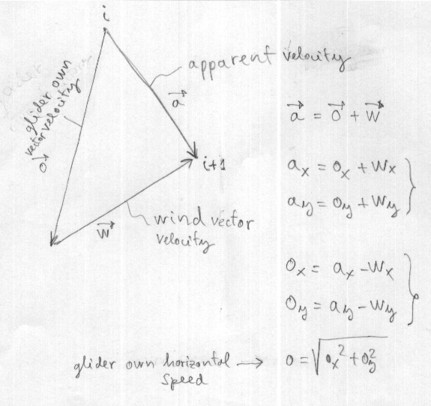 i
apparent velocity
glider own
vector velocity
o⃗
a⃗
i+1
w⃗
wind vector
velocity
a⃗ = o⃗ + w⃗
aₓ = oₓ + wₓ
a_y = o_y + w_y
oₓ = aₓ - wₓ
o_y = a_y - w_y
glider own horizontal → o = √(oₓ² + o_y²)
speed